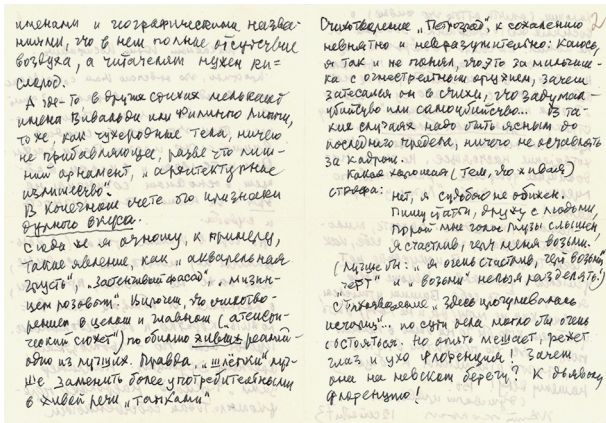 именами и географическими назва-
ниями, что в нем полное отсутствие
воздуха, а читателям нужен ки-
слород.
А где-то в других стихах мелькают
имена Вивальди или Филиппо Липпи,
тоже, как чужеродные тела, ничего
не прибавляющее, разве что лиш-
ний орнамент, "архитектурное
излишество".
В конечном счете это признаки
дурного вкуса.
Сюда же я отношу, к примеру,
такие явления, как "акварельная
грусть", "застенчивый фасад", "мизин-
цем розовым". Впрочем, это стихотво-
рение в целом и главном
ческий сюжет") по обилию живых реалий -
одно из лучших. Правда, "шлёпки" луч-
ше заменить более употребительными
в живой речи "тапками"
2
Стихотворение "Петроград", к сожалению
невнятно и невразумительно: каюсь,
я так и не понял, что это за мальчиш-
ка с огнестрельным оружием, зачем
затесался он в стихи, что задумал -
убийство или самоубийство... В та-
ких случаях надо быть ясным до
последнего предела, ничего не оставлять
за кадром.
Какая хорошая (тем, что живая)
строфа:
Нет, я судьбою не обижен.
Пишу стихи, дружу с людьми,
Порой мне голос Музы слышен,
Я счастлив, черт меня возьми.
(Лучше бы: "я очень счастлив, черт возьми"
"черт" и "возьми" нельзя разделять!)
Стихотворение "Здесь прогуливалась
" по сути дела могло бы очень
состояться. Но опять мешает, режет
глаз и ухо Флоренция! Зачем
она на невском берегу? К дьяволу
Флоренцию!